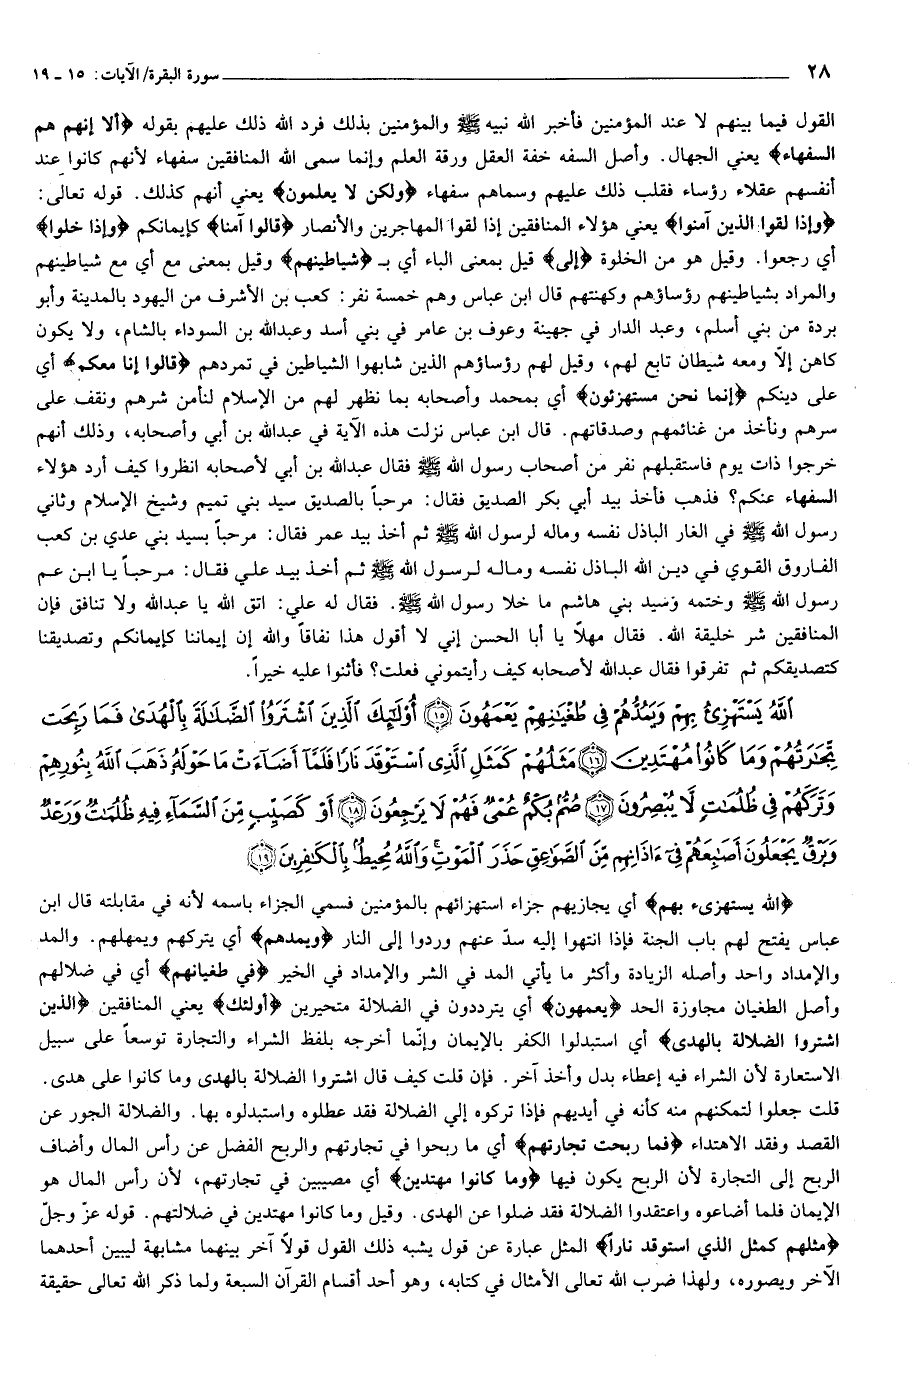 ٢٨ سورة البقرة/ الآيات: ١٥ ـ ١٩
القول فيما بينهم لا عند المؤمنين فأخبر الله نبيه ﷺ والمؤمنين بذلك فرد الله ذلك عليهم بقوله ﴿ألا إنهم هم
السفهاء﴾ يعني الجهال. وأصل السفه خفة العقل ورقة العلم وإنما سمى الله المنافقين سفهاء لأنهم كانوا عند
أنفسهم عقلاء رؤساء فقلب ذلك عليهم وسماهم سفهاء ﴿ولكن لا يعلمون﴾ يعني أنهم كذلك. قوله تعالى:
﴿وإذا لقوا الذين آمنوا﴾ يعني هؤلاء المنافقين إذا لقوا المهاجرين والأنصار ﴿قالوا آمنا﴾ كإيمانكم ﴿وإذا خلوا﴾
أي رجعوا. وقيل هو من الخلوة ﴿إلى﴾ قيل بمعنى الباء أي بـ ﴿شياطينهم﴾ وقيل بمعنى مع أي مع شياطينهم
والمراد بشياطينهم رؤساؤهم وكهنتهم قال ابن عباس وهم خمسة نفر: كعب بن الأشرف من اليهود بالمدينة وأبو
بردة من بني أسلم، وعبد الدار في جهينة وعوف بن عامر في بني أسد وعبدالله بن السوداء بالشام، ولا يكون
كاهن إلاّ ومعه شيطان تابع لهم، وقيل لهم رؤساؤهم الذين شابهوا الشياطين في تمردهم ﴿قالوا إنا معكم﴾ أي
على دينكم ﴿إنما نحن مستهزئون﴾ أي بمحمد وأصحابه بما نظهر لهم من الإسلام لنأمن شرهم ونقف على
سرهم ونأخذ من غنائمهم وصدقاتهم. قال ابن عباس نزلت هذه الآية في عبدالله بن أبي وأصحابه، وذلك أنهم
خرجوا ذات يوم فاستقبلهم نفر من أصحاب رسول الله ﷺ فقال عبدالله بن أبي لأصحابه انظروا كيف أرد هؤلاء
السفهاء عنكم؟ فذهب فأخذ بيد أبي بكر الصديق فقال: مرحباً بالصديق سيد بني تميم وشيخ الإسلام وثاني
رسول الله ﷺ في الغار الباذل نفسه وماله لرسول الله ﷺ ثم أخذ بيد عمر فقال: مرحباً بسيد بني عدي بن كعب
الفاروق القوي في دين الله الباذل نفسه وماله لرسول الله ﷺ ثم أخذ بيد علي فقال: مرحباً يا ابن عم
رسول الله ﷺ وختمه وسيد بني هاشم ما خلا رسول الله ﷺ. فقال له علي: اتق الله يا عبدالله ولا تنافق فإن
المنافقين شر خليقة الله. فقال مهلاً يا أبا الحسن إني لا أقول هذا نفاقاً والله إن إيماننا كإيمانكم وتصديقنا
كتصديقكم ثم تفرقوا فقال عبدالله لأصحابه كيف رأيتموني فعلت؟ فأثنوا عليه خيراً.
ٱللَّهُ يَسْتَهْزِئُ بِهِمْ وَيَمُدُّهُمْ فِي طُغْيَٰنِهِمْ يَعْمَهُونَ ﴿١٥﴾ أُوْلَٰٓئِكَ ٱلَّذِينَ ٱشْتَرَوُاْ ٱلضَّلَٰلَةَ بِٱلْهُدَىٰ فَمَا رَبِحَت
تِّجَٰرَتُهُمْ وَمَا كَانُواْ مُهْتَدِينَ ﴿١٦﴾ مَثَلُهُمْ كَمَثَلِ ٱلَّذِى ٱسْتَوْقَدَ نَارًا فَلَمَّآ أَضَآءَتْ مَا حَوْلَهُۥ ذَهَبَ ٱللَّهُ بِنُورِهِمْ
وَتَرَكَهُمْ فِى ظُلُمَٰتٍ لَّا يُبْصِرُونَ ﴿١٧﴾ صُمٌّۢ بُكْمٌ عُمْىٌ فَهُمْ لَا يَرْجِعُونَ ﴿١٨﴾ أَوْ كَصَيِّبٍ مِّنَ ٱلسَّمَآءِ فِيهِ ظُلُمَٰتٌ وَرَعْدٌ
وَبَرْقٌ يَجْعَلُونَ أَصَٰبِعَهُمْ فِىٓ ءَاذَانِهِم مِّنَ ٱلصَّوَٰعِقِ حَذَرَ ٱلْمَوْتِ وَٱللَّهُ مُحِيطٌۢ بِٱلْكَٰفِرِينَ ﴿١٩﴾
﴿الله يستهزىء بهم﴾ أي يجازيهم جزاء استهزائهم بالمؤمنين فسمي الجزاء باسمه لأنه في مقابلته قال ابن
عباس يفتح لهم باب الجنة فإذا انتهوا إليه سدّ عنهم وردوا إلى النار ﴿ويمدهم﴾ أي يتركهم ويمهلهم. والمد
والإمداد واحد وأصله الزيادة وأكثر ما يأتي المد في الشر والإمداد في الخير ﴿في طغيانهم﴾ أي في ضلالهم
وأصل الطغيان مجاوزة الحد ﴿يعمهون﴾ أي يترددون في الضلالة متحيرين ﴿أولئك﴾ يعني المنافقين ﴿الذين
اشتروا الضلالة بالهدى﴾ أي استبدلوا الكفر بالإيمان وإنّما أخرجه بلفظ الشراء والتجارة توسعاً على سبيل
الاستعارة لأن الشراء فيه إعطاء بدل وأخذ آخر. فإن قلت كيف قال اشتروا الضلالة بالهدى وما كانوا على هدى.
قلت جعلوا لتمكنهم منه كأنه في أيديهم فإذا تركوه إلي الضلالة فقد عطلوه واستبدلوه بها. والضلالة الجور عن
القصد وفقد الاهتداء ﴿فما ربحت تجارتهم﴾ أي ما ربحوا في تجارتهم والربح الفضل عن رأس المال وأضاف
الربح إلى التجارة لأن الربح يكون فيها ﴿وما كانوا مهتدين﴾ أي مصيبين في تجارتهم، لأن رأس المال هو
الإيمان فلما أضاعوه واعتقدوا الضلالة فقد ضلوا عن الهدى. وقيل وما كانوا مهتدين في ضلالتهم. قوله عزّ وجلّ
﴿مثلهم كمثل الذي استوقد ناراً﴾ المثل عبارة عن قول يشبه ذلك القول قولاً آخر بينهما مشابهة ليبين أحدهما
الآخر ويصوره، ولهذا ضرب الله تعالى الأمثال في كتابه، وهو أحد أقسام القرآن السبعة ولما ذكر الله تعالى حقيقة